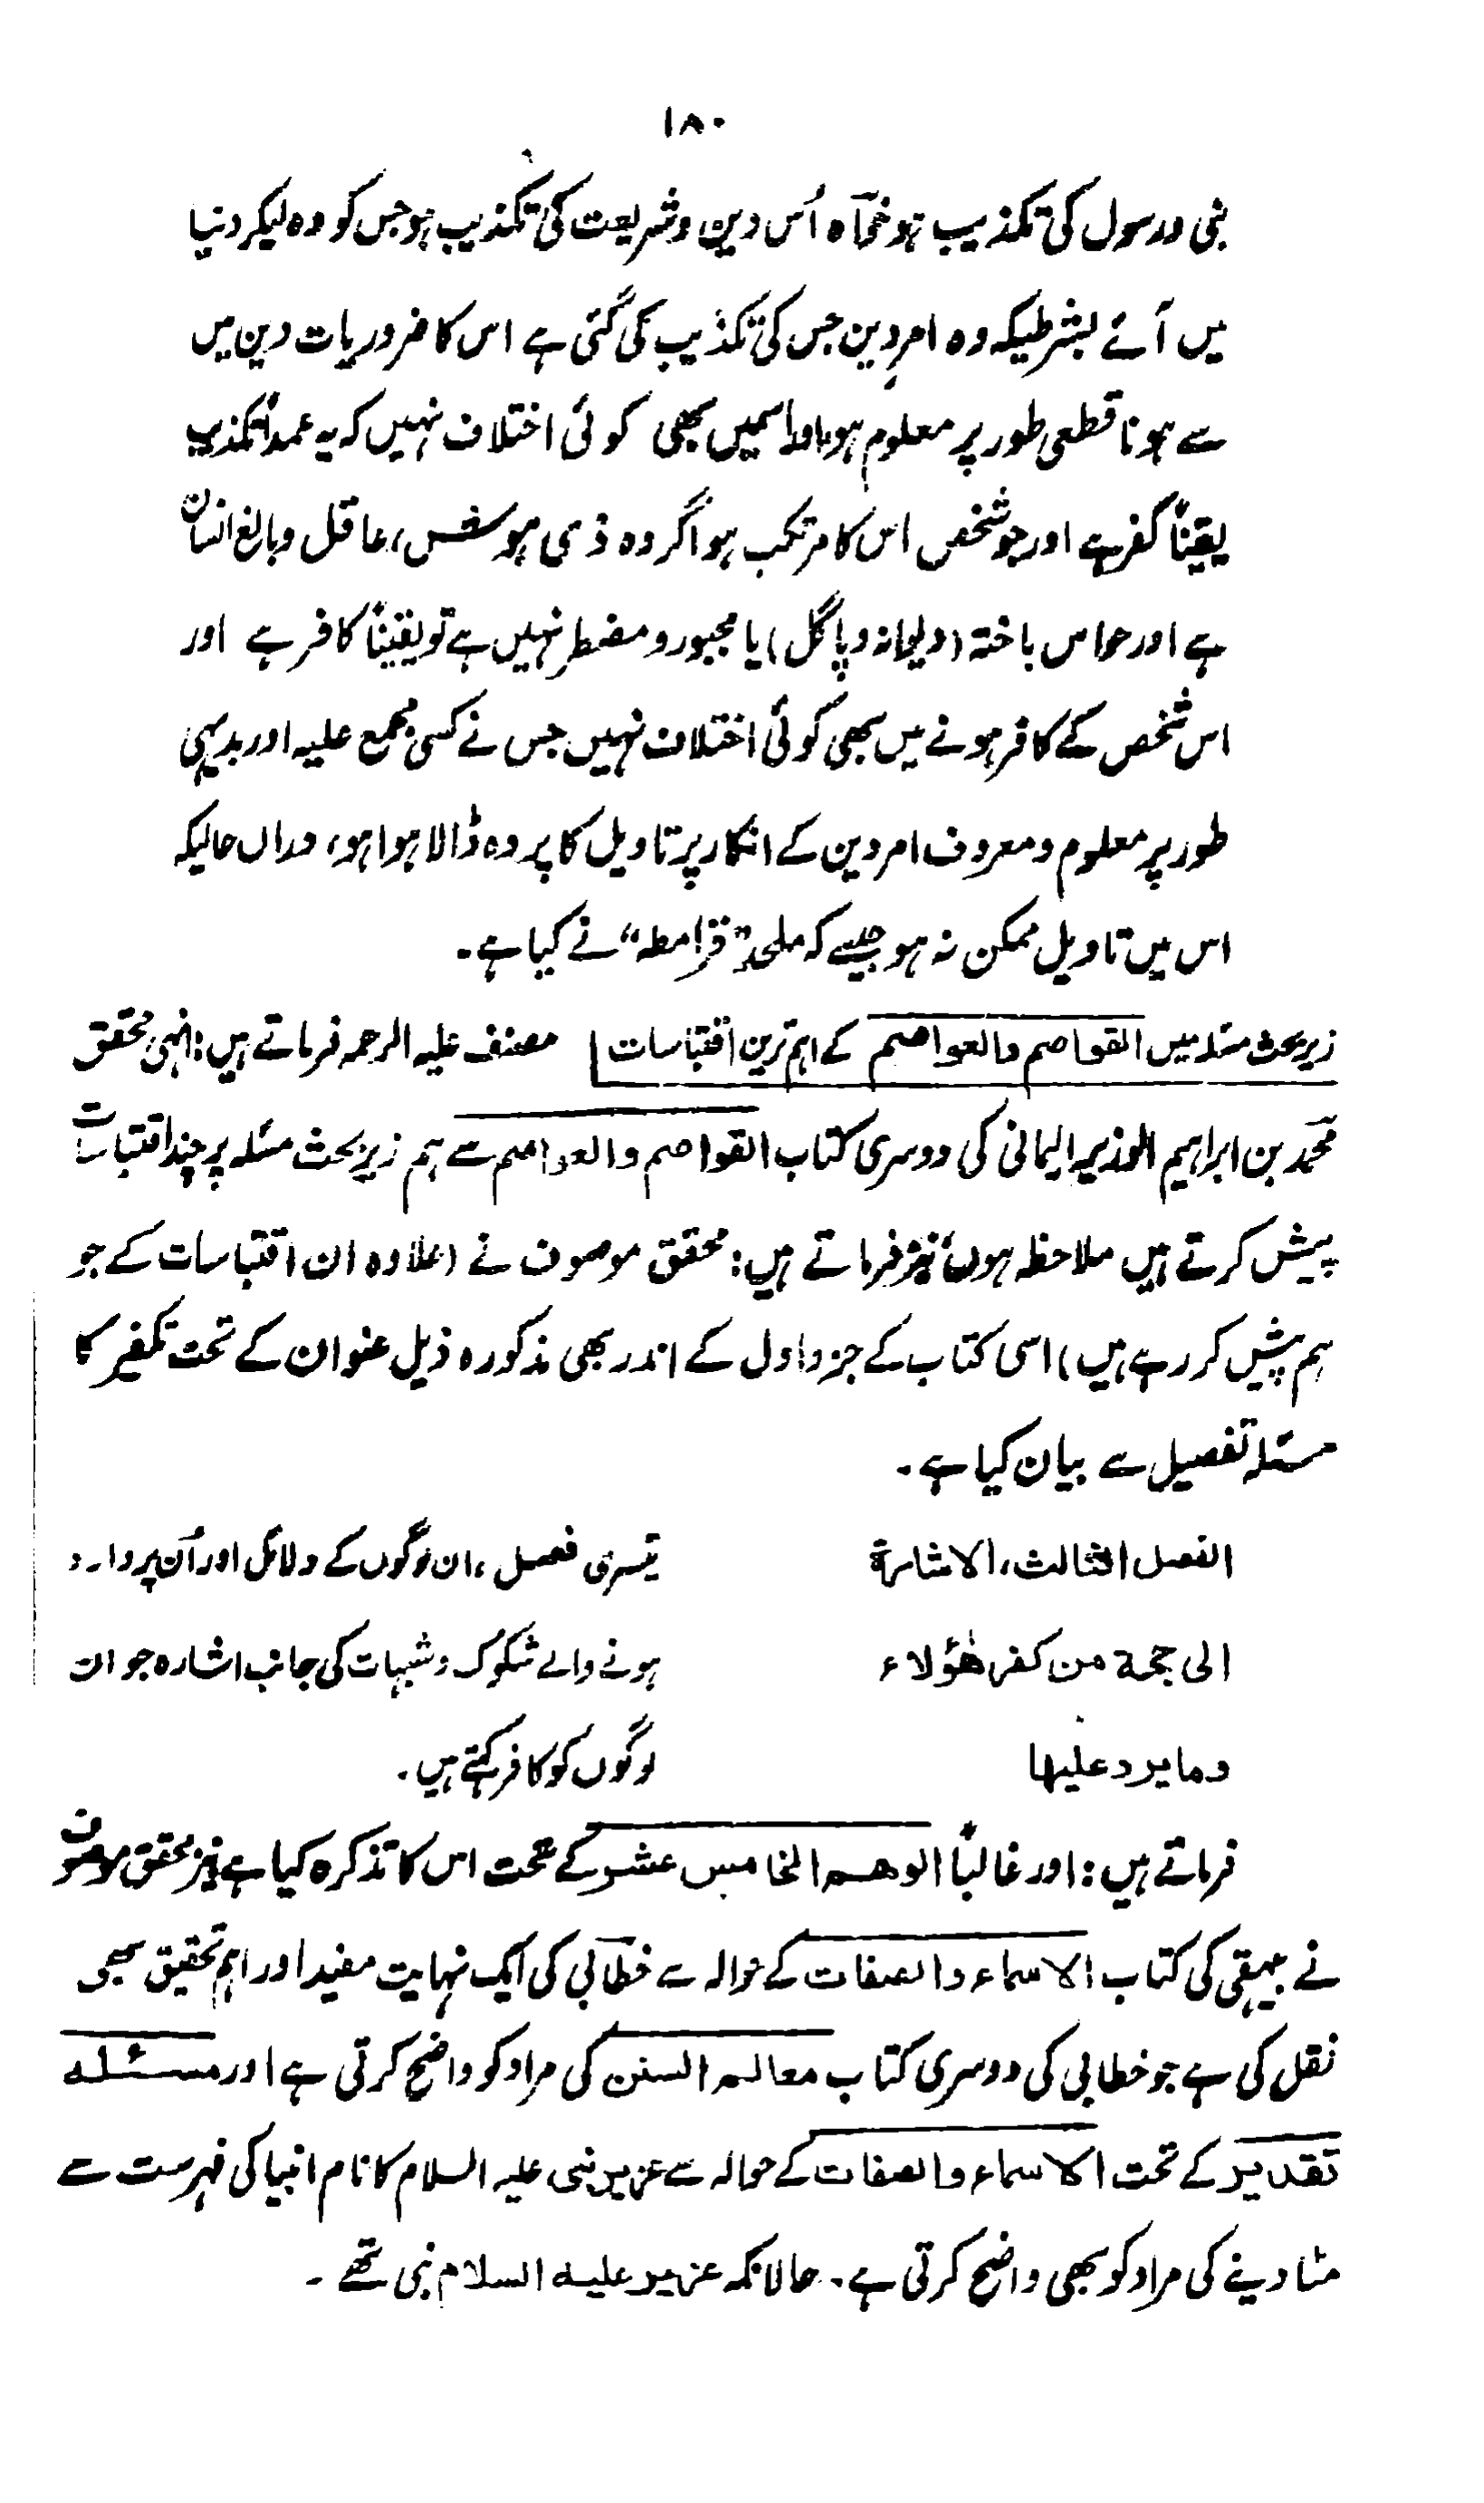 ۱۸۰
نبی و رسول کی تکذیب ہو خواہ اُس دین و شریعت کی تکذیب ہو جس کو وہ لیکر دنیا
میں آئے بشرطیکہ وہ امرِ دین جس کی تکذیب کی گئی ہے اس کا ضروریات دین میں
سے ہونا قطعی طور پر معلوم ہو، اور اسمیں بھی کوئی اختلاف نہیں کہ یہ عمداً تکذیب
یقیناً کفر ہے اور جو شخص اس کا مرتکب ہو اگر وہ ذی ہوش، عاقل و بالغ انسان
ہے اور حواس باختہ (دیوانہ و پاگل) یا مجبور و مضطر نہیں ہے تو یقیناً کافر ہے اور
اس شخص کے کافر ہونے میں بھی کوئی اختلاف نہیں جس نے کسی مجمع علیہ اور بدیہی
طور پر معلوم و معروف امر دین کے انکار پر تاویل کا پردہ ڈالا ہوا ہو، دراں حالیکہ
اس میں تاویل ممکن نہ ہو جیسے کہ ملحد "قرامطہ" نے کیا ہے۔
زیر بحث مسئلہ میں القواصم والعواصم کے اہم ترین اقتباسات مصنف علیہ الرحمہ فرماتے ہیں: انہی محقق
محمد بن ابراہیم الوزیر الیمانی کی دوسری کتاب القواصم والعواصم سے ہم زیر بحث مسئلہ پر چند اقتباسات
پیش کرتے ہیں ملاحظہ ہوں، نیز فرماتے ہیں: محقق موصوف نے (علاوہ ان اقتباسات کے جو
ہم پیش کر رہے ہیں) اسی کتاب کے جزو اول کے اندر بھی مذکورہ ذیل عنوان کے تحت تکفیر کا
مسئلہ تفصیل سے بیان کیا ہے۔
الفصل الثالث، الاشارة تیسری فصل، ان لوگوں کے دلائل اور اُن پر وارد
الی حجة من کفر هٰؤلاء ہونے والے شکوک و شبہات کی جانب اشارہ جو ان
وما یرد علیها لوگوں کو کافر کہتے ہیں۔
فرماتے ہیں: اور غالباً الوهم الخامس عشر کے تحت اس کا تذکرہ کیا ہے نیز محقق موصوف
نے بیہقی کی کتاب الاسماء والصفات کے حوالہ سے خطابی کی ایک نہایت مفید اور اہم تحقیق بھی
نقل کی ہے جو خطابی کی دوسری کتاب معالم السنن کی مراد کو واضح کرتی ہے اور مسئلہ
تقدیر کے تحت الاسماء والصفات کے حوالہ سے عزیر نبی علیہ السلام کا نام انبیا کی فہرست سے
مٹا دینے کی مراد کو بھی واضح کرتی ہے۔ حالانکہ عزیر علیہ السلام نبی تھے۔